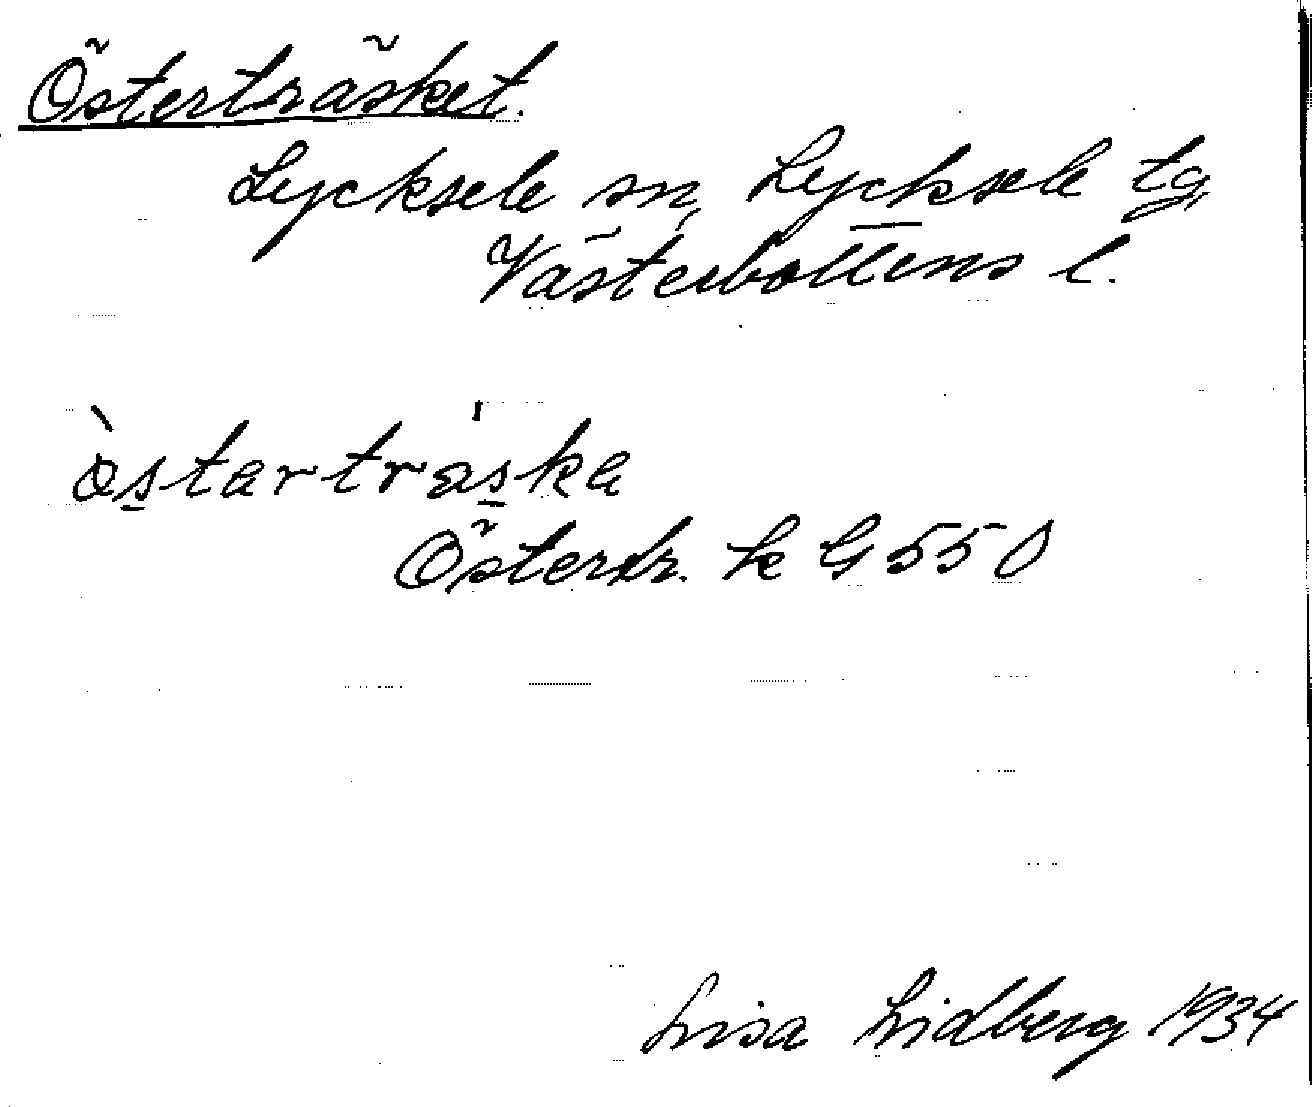 Österträsket.
Lycksele sn, Lycksele tg,
Västerbottens l.
òstarträska
Österdr. k G 550
Lisa Lidberg 1934